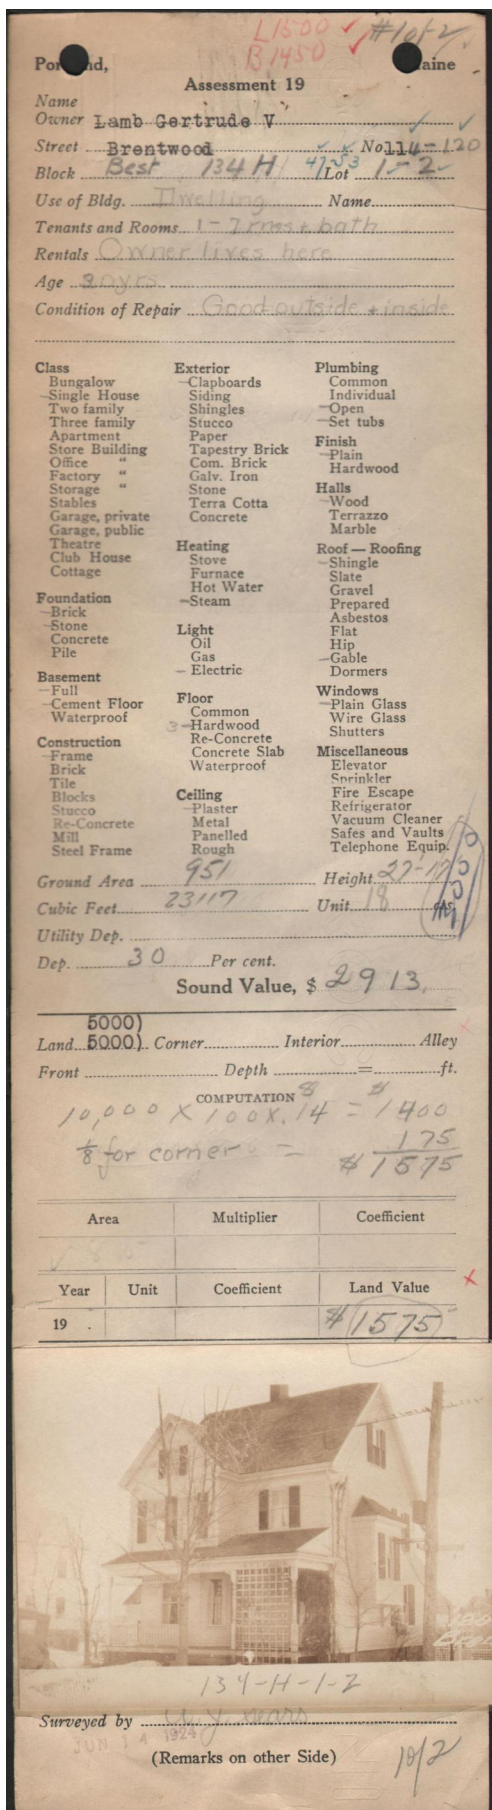 L1500 #1of2
B1450
Portland, Maine
Assessment 19
Name
Owner Lamb Gertrude V
Street Brentwood No114-120
Block Best 134 H 47-53 Lot 1-2
Use of Bldg. Dwelling Name
Tenants and Rooms 1-7 rms + bath
Rentals Owner lives here
Age 30yrs
Condition of Repair Good outside + inside
Class
Bungalow
-Single House
Two family
Three family
Apartment
Store Building
Office "
Factory "
Storage "
Stables
Garage, private
Garage, public
Theatre
Club House
Cottage
Foundation
-Brick
-Stone
Concrete
Pile
Basement
-Full
-Cement Floor
Waterproof
Construction
-Frame
Brick
Tile
Blocks
Stucco
Re-Concrete
Mill
Steel Frame
Exterior
-Clapboards
Siding
Shingles
Stucco
Paper
Tapestry Brick
Com. Brick
Galv. Iron
Stone
Terra Cotta
Concrete
Heating
Stove
Furnace
Hot Water
-Steam
Light
Oil
Gas
- Electric
Floor
Common
3-Hardwood
Re-Concrete
Concrete Slab
Waterproof
Ceiling
-Plaster
Metal
Panelled
Rough
Plumbing
Common
Individual
-Open
-Set tubs
Finish
-Plain
Hardwood
Halls
-Wood
Terrazzo
Marble
Roof — Roofing
-Shingle
Slate
Gravel
Prepared
Asbestos
Flat
Hip
-Gable
Dormers
Windows
-Plain Glass
Wire Glass
Shutters
Miscellaneous
Elevator
Sprinkler
Fire Escape
Refrigerator
Vacuum Cleaner
Safes and Vaults
Telephone Equip.
Ground Area 951 Height 27'-17
Cubic Feet 23117 Unit 18
Utility Dep.
Dep. 30 Per cent.
Sound Value, $ 2913.
5000)
Land 5000) Corner Interior Alley
Front Depth = ft.
COMPUTATION
10,000 X 100X.14 = $1400
1/8 for corner = 175
$1575
Area Multiplier Coefficient
Year Unit Coefficient Land Value
19 $1575
134-H-1-2
Surveyed by
JUN 14 1924
(Remarks on other Side)
1of2